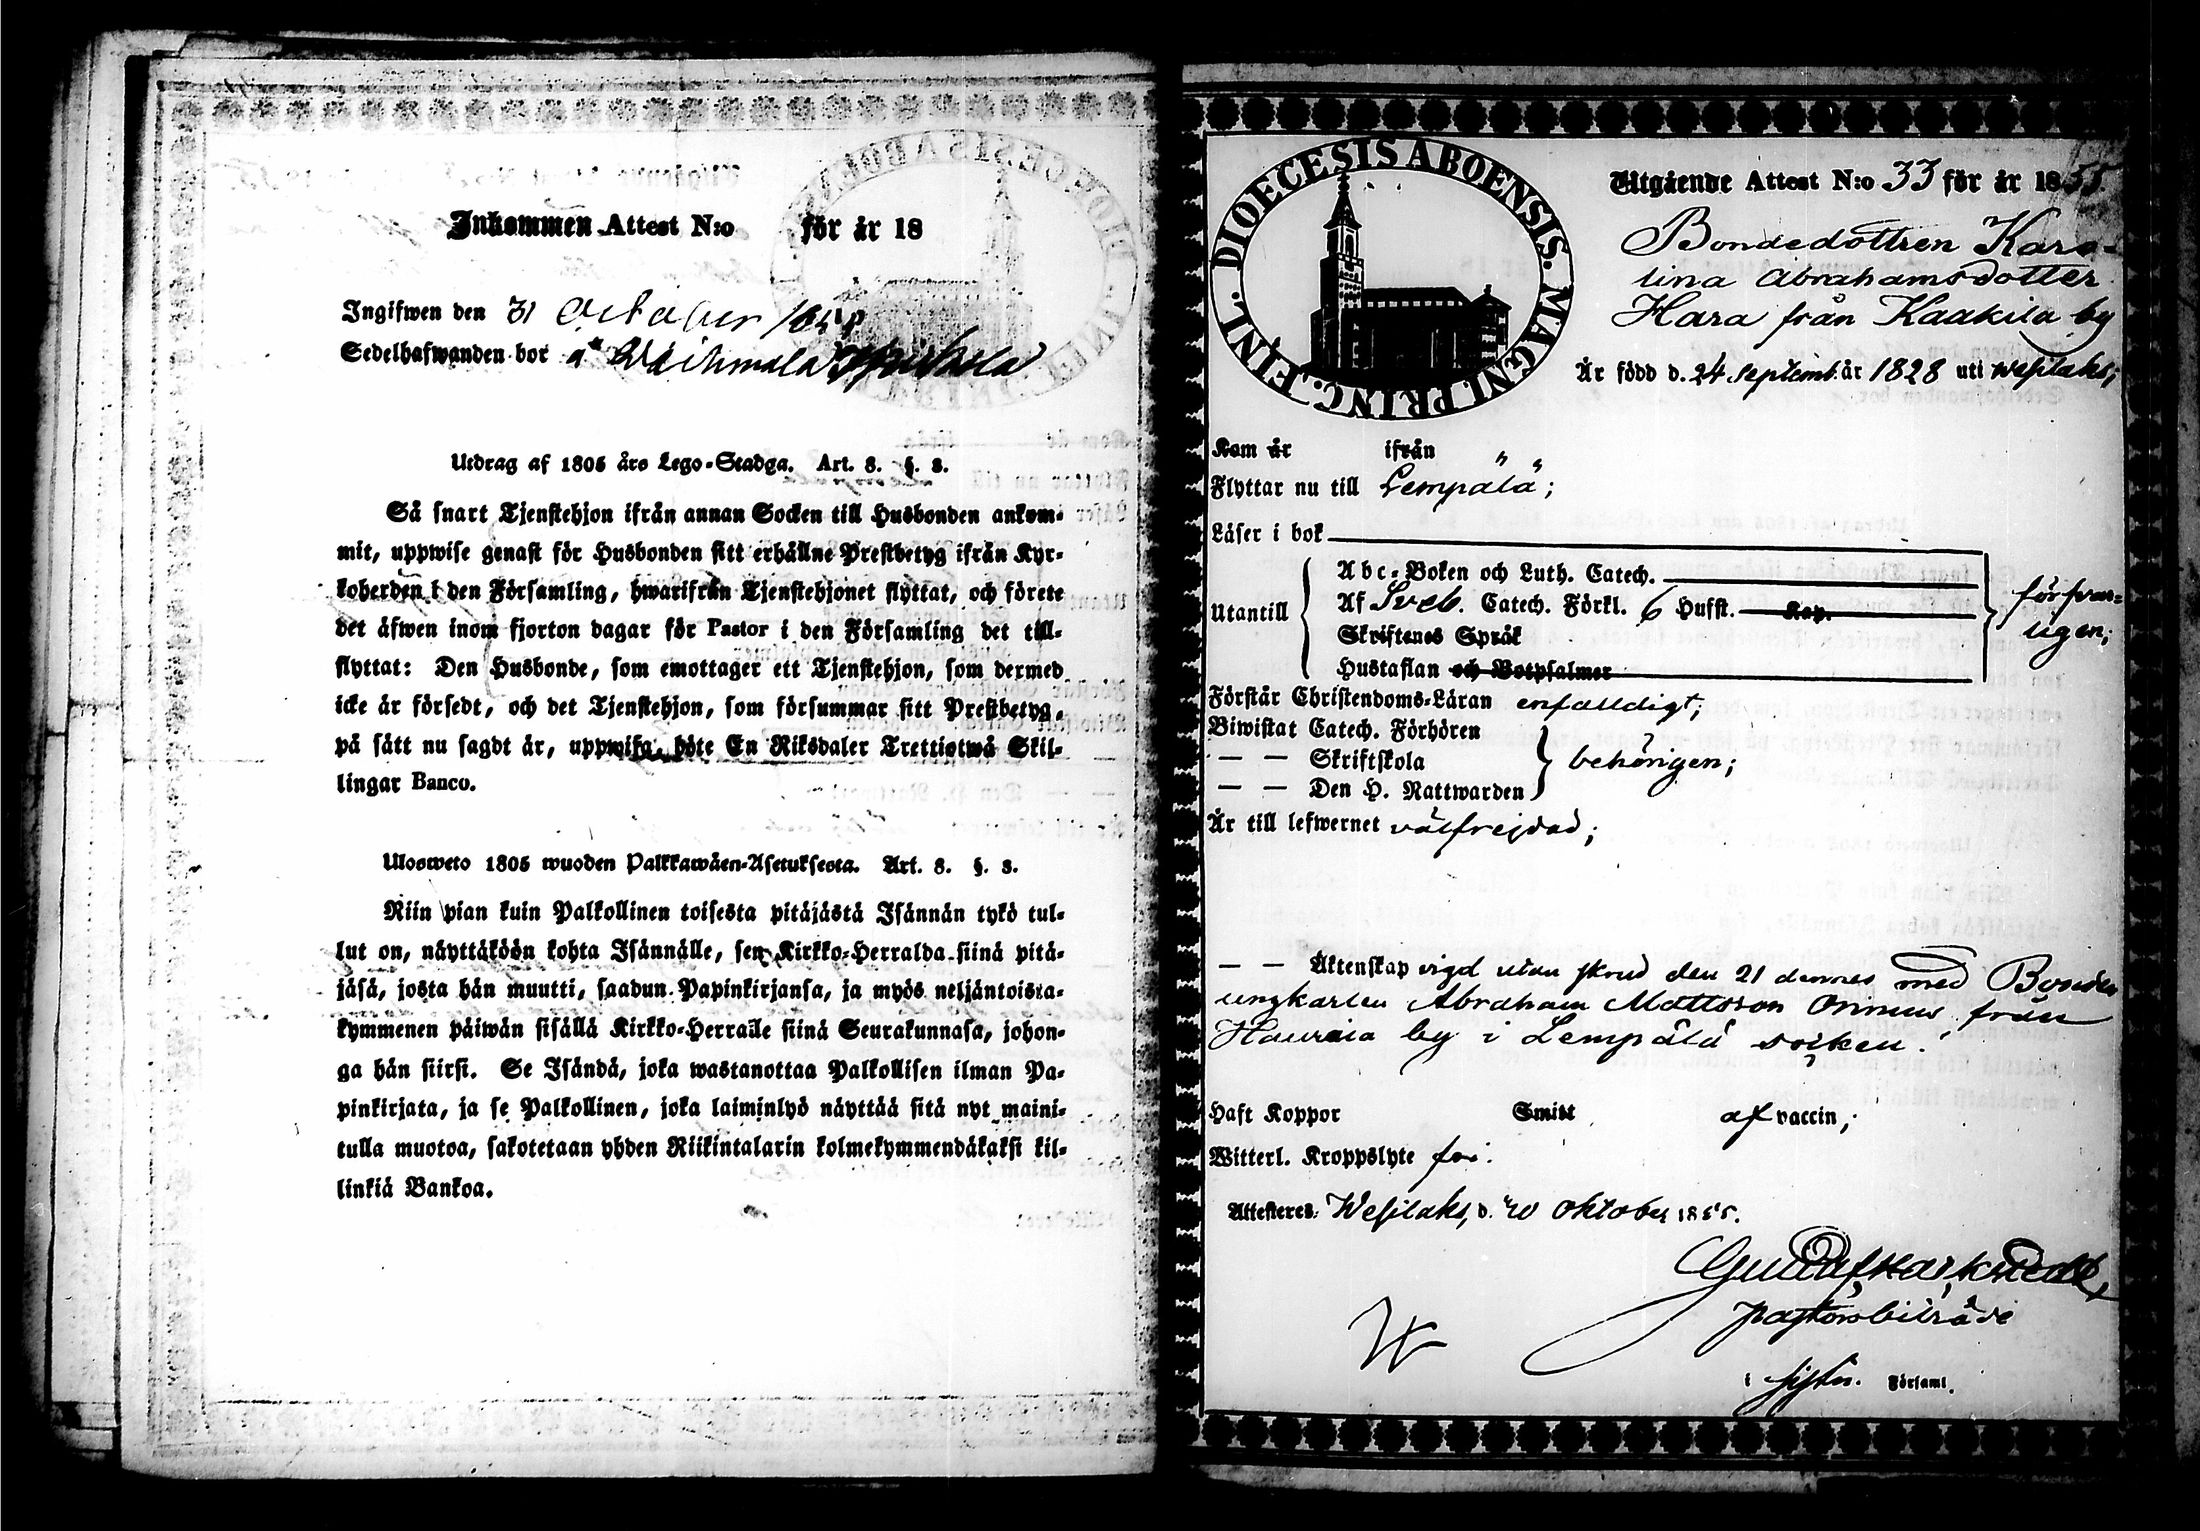 Inkommen Attest N:o för år 18
Ingifwen den 31 October 1855
Sedelhafwanden bor å
Utdrag af 1805 års Lego-Stadga. Art. 8. §. 8.
Så snart Tjenstehjon ifrån annan Socken till Husbonden ankom-
mit, uppwise genast för Husbonden sitt erhållne Prestbetyg ifrån Kyr-
koherden i den Församling, hwarifrån Tjenstehjonet flyttat, och förete
det äfwen inom fjorton dagar för Pastor i den Församling det till-
flyttat: Den Husbonde, som emottager ett Tjenstehjon, som dermed
icke är försedt, och det Tjenstehjon, som försummar sitt Prestbetyg,
på sätt nu sagdt är, uppwisa, böte En Riksdaler Trettiotwå Skil-
lingar Banco.
Ulosweto 1805 wuoden Palkkawäen-Asetuksesta. Art. 8. §. 8.
Niin pian kuin Palkollinen toisesta pitäjästä Isännän tykö tul-
lut on, näyttäköön kohta Isännälle, sen Kirkko-Herralda siinä pitä-
jäsä, josta hän muutti, saadun Papinkirjansa, ja myös neljäntoista-
kymmenen päiwän sisällä Kirkko-Herralle siinä Seurakunnasa, johon-
ga hän siirsi. Se Isändä, joka wastanottaa Palkollisen ilman Pa-
pinkirjata, ja se Palkollinen, joka laiminlyö näyttää sitä nyt maini-
tulla muotoa, sakotetaan yhden Riikintalarin kolmekymmendäkaksi kil-
linkiä Bankoa.
DIOECESIS ABOENSIS. MAGNI PRINC. FINL.
Utgående Attest N:o 33 för år 1855.
Bondedottren Karo-
lina Abrahamsdotter
Hara från Kaakila by
Är född d. 24 Septemb. år 1828 uti Wesilaks;
Kom år ifrån " "
Flyttar nu till Lempälä;
Läser i bok
Abc-Boken och Luth. Catech.
Utantill Af Sveb. Catech. Förkl. 6 Hufst. Kap. försvar-
ligen;
Skriftenes Språk
Hustaflan och Botpsalmer
Förstår Christendoms-Läran enfalldigt;
Biwistat Catech. Förhören
— — Skriftskola behörigen;
— — Den H. Nattwarden
Är till lefwernet välfrejdad;
— — Äktenskap vigd utan skrud den 21 dennes med Bonde
ungkarlen Abraham Mattsson från
by i Lempälä socken.
Haft Koppor Smitt af vaccin;
Witterl. Kroppslyte fri.
Attesteres: Wesilaks, d. 20 Oktober 1855.
Pastorsbiträde
i Församl.